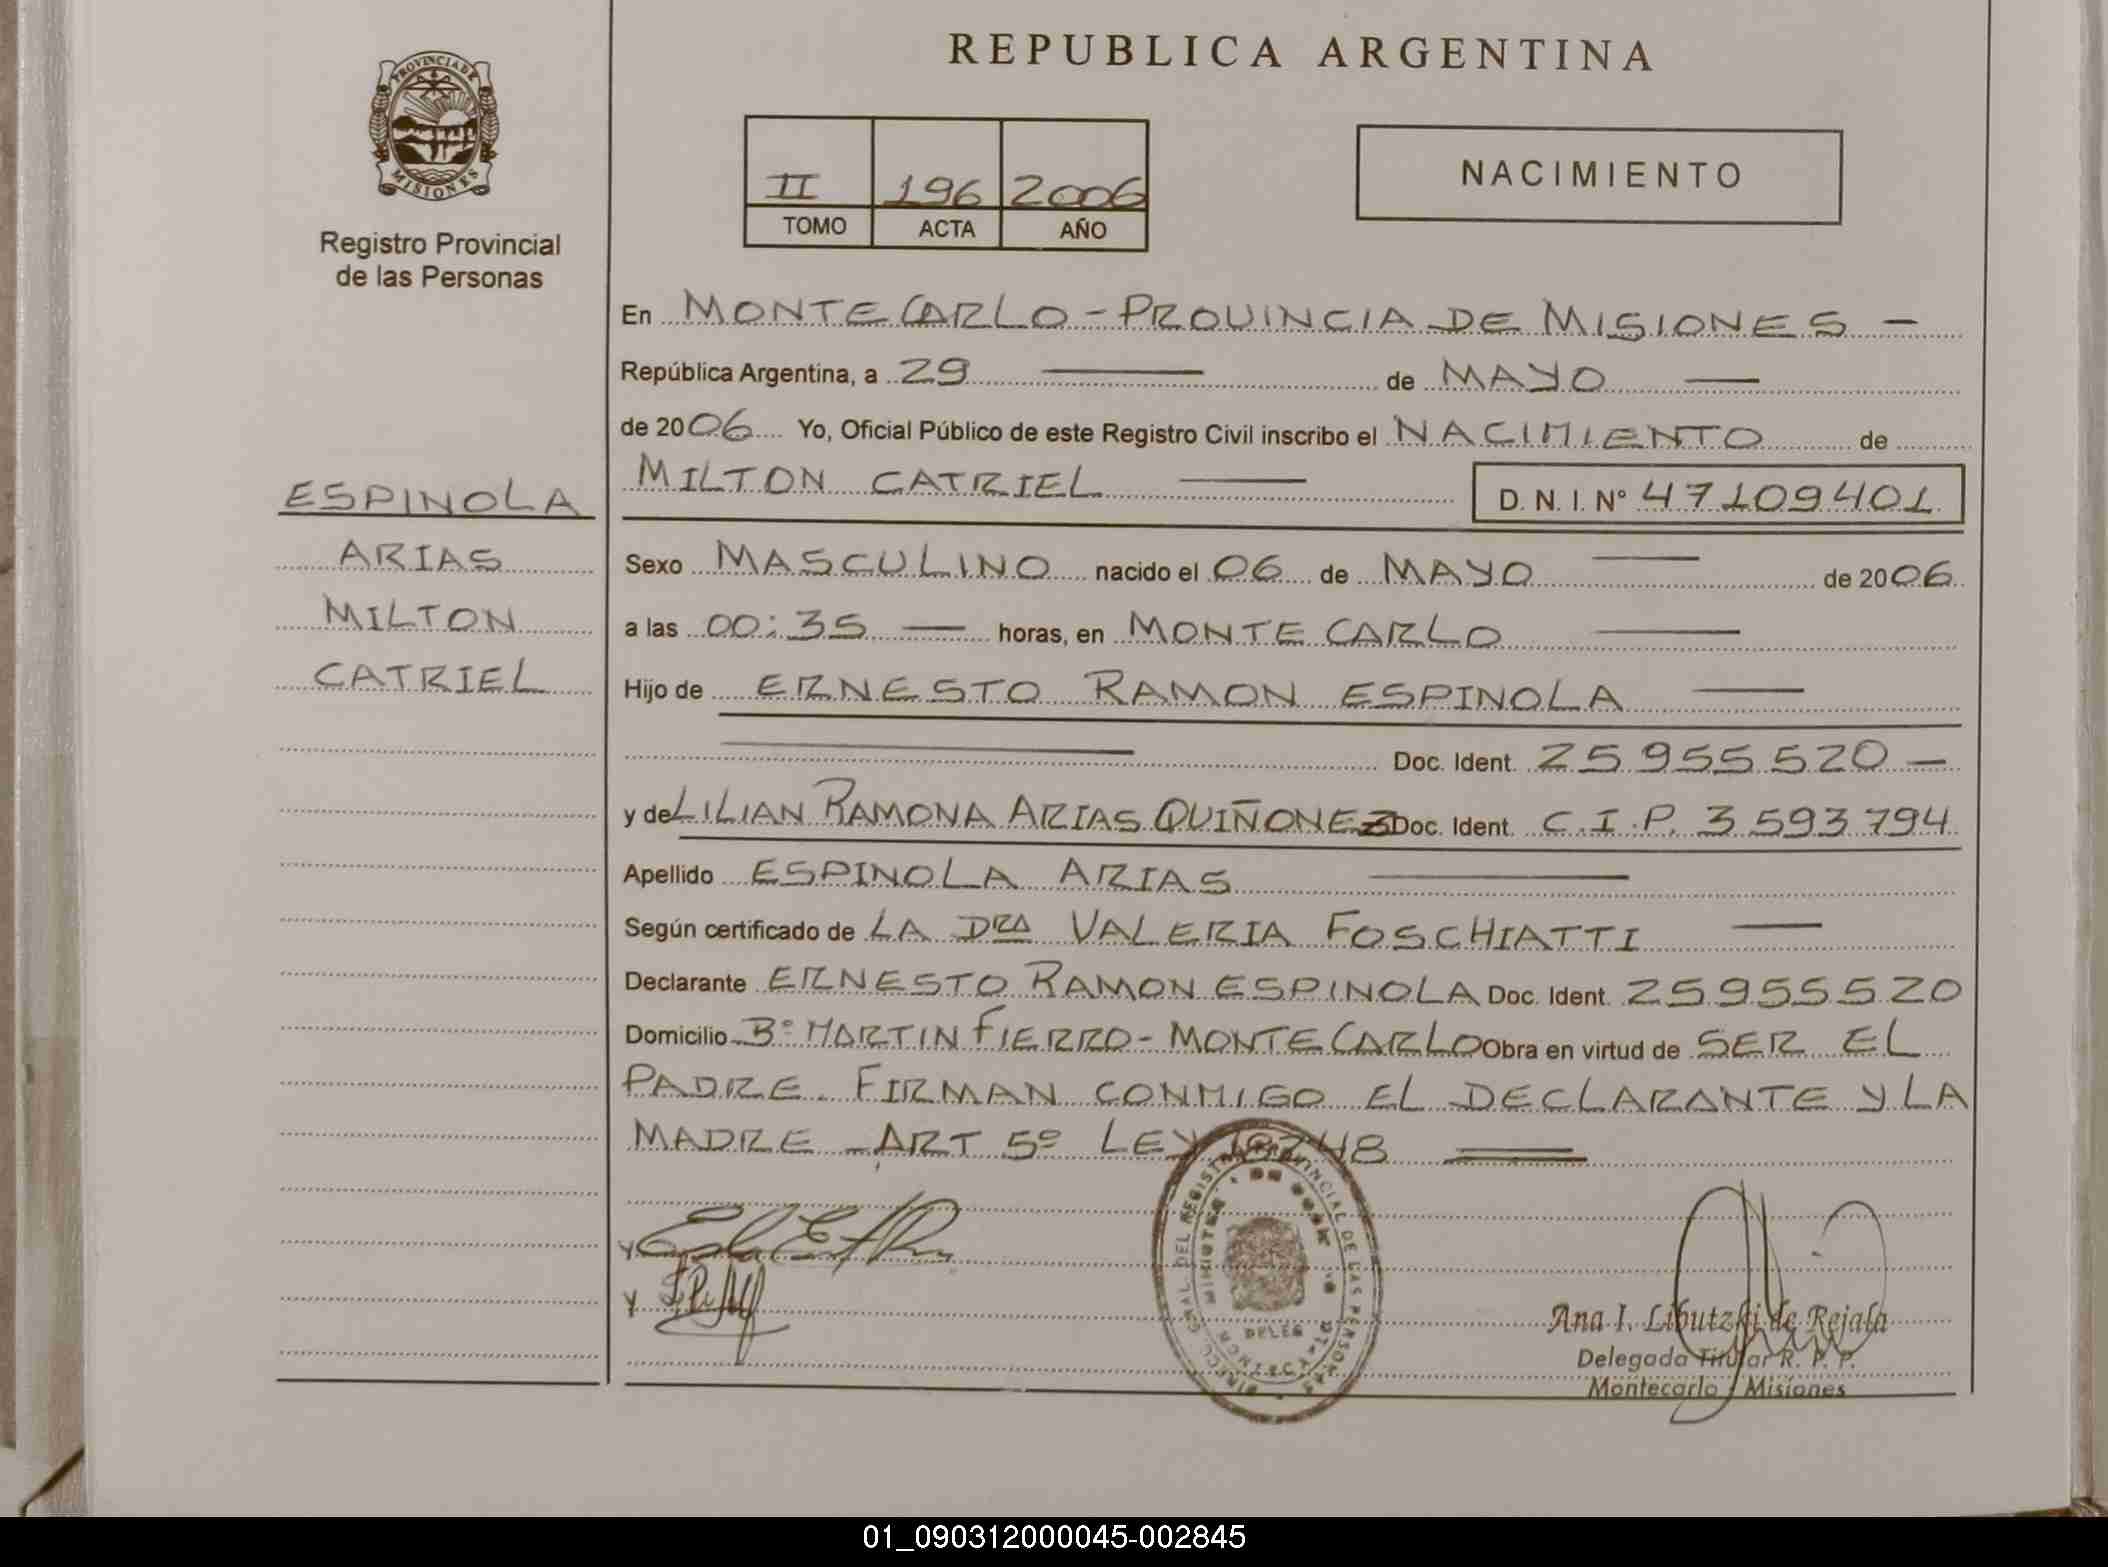 REPUBLICA ARGENTINA
PROVINCIA DE
MISIONES
Registro Provincial
de las Personas
II 196 2006
TOMO ACTA AÑO
NACIMIENTO
En MONTECARLO - PROVINCIA DE MISIONES -
República Argentina, a 29 de MAYO
de 2006 Yo, Oficial Público de este Registro Civil inscribo el NACIMIENTO de
MILTON CATRIEL D. N. I. N° 47109401
ESPINOLA
ARIAS
MILTON
CATRIEL
Sexo MASCULINO nacido el 06 de MAYO de 2006
a las 00:35 horas, en MONTECARLO
Hijo de ERNESTO RAMON ESPINOLA
Doc. Ident. 25955520 -
y de LILIAN RAMONA ARIAS QUIÑONEZ Doc. Ident. C.I.P. 3593794
Apellido ESPINOLA ARIAS
Según certificado de LA DRA VALERIA FOSCHIATTI
Declarante ERNESTO RAMON ESPINOLA Doc. Ident. 25955520
Domicilio B° MARTIN FIERRO - MONTECARLO Obra en virtud de SER EL
PADRE. FIRMAN CONMIGO EL DECLARANTE Y LA
MADRE - ART 5° LEY 18248
y
y
REGISTRO PROVINCIAL DE LAS PERSONAS
Ana I. Libutzki de Rejala
Delegada Titular R. P. P.
Montecarlo - Misiones
01_090312000045-002845